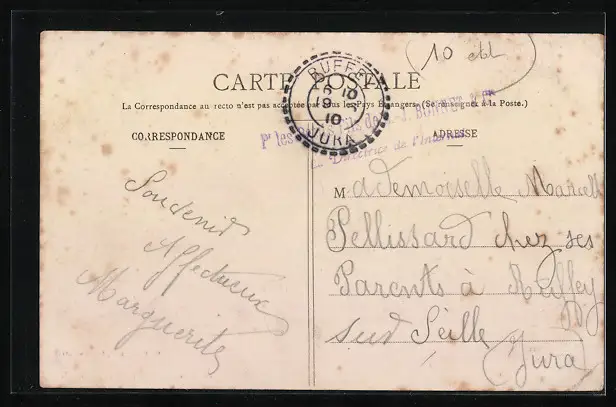 (10 ctb
CARTE POSTALE
La Correspondance au recto n'est pas acceptée par tous les Pays Etrangers. (Se renseigner à la Poste.)
RUFFEY
10
10
JURA
Pr les
La Directrice de l'Internat
CORRESPONDANCE
ADRESSE
Souvenir
Affectueux
Marguerite
Mademoiselle Marcelle
Pellissard chez ses
Parents à Ruffey
sur Seille
(Jura)